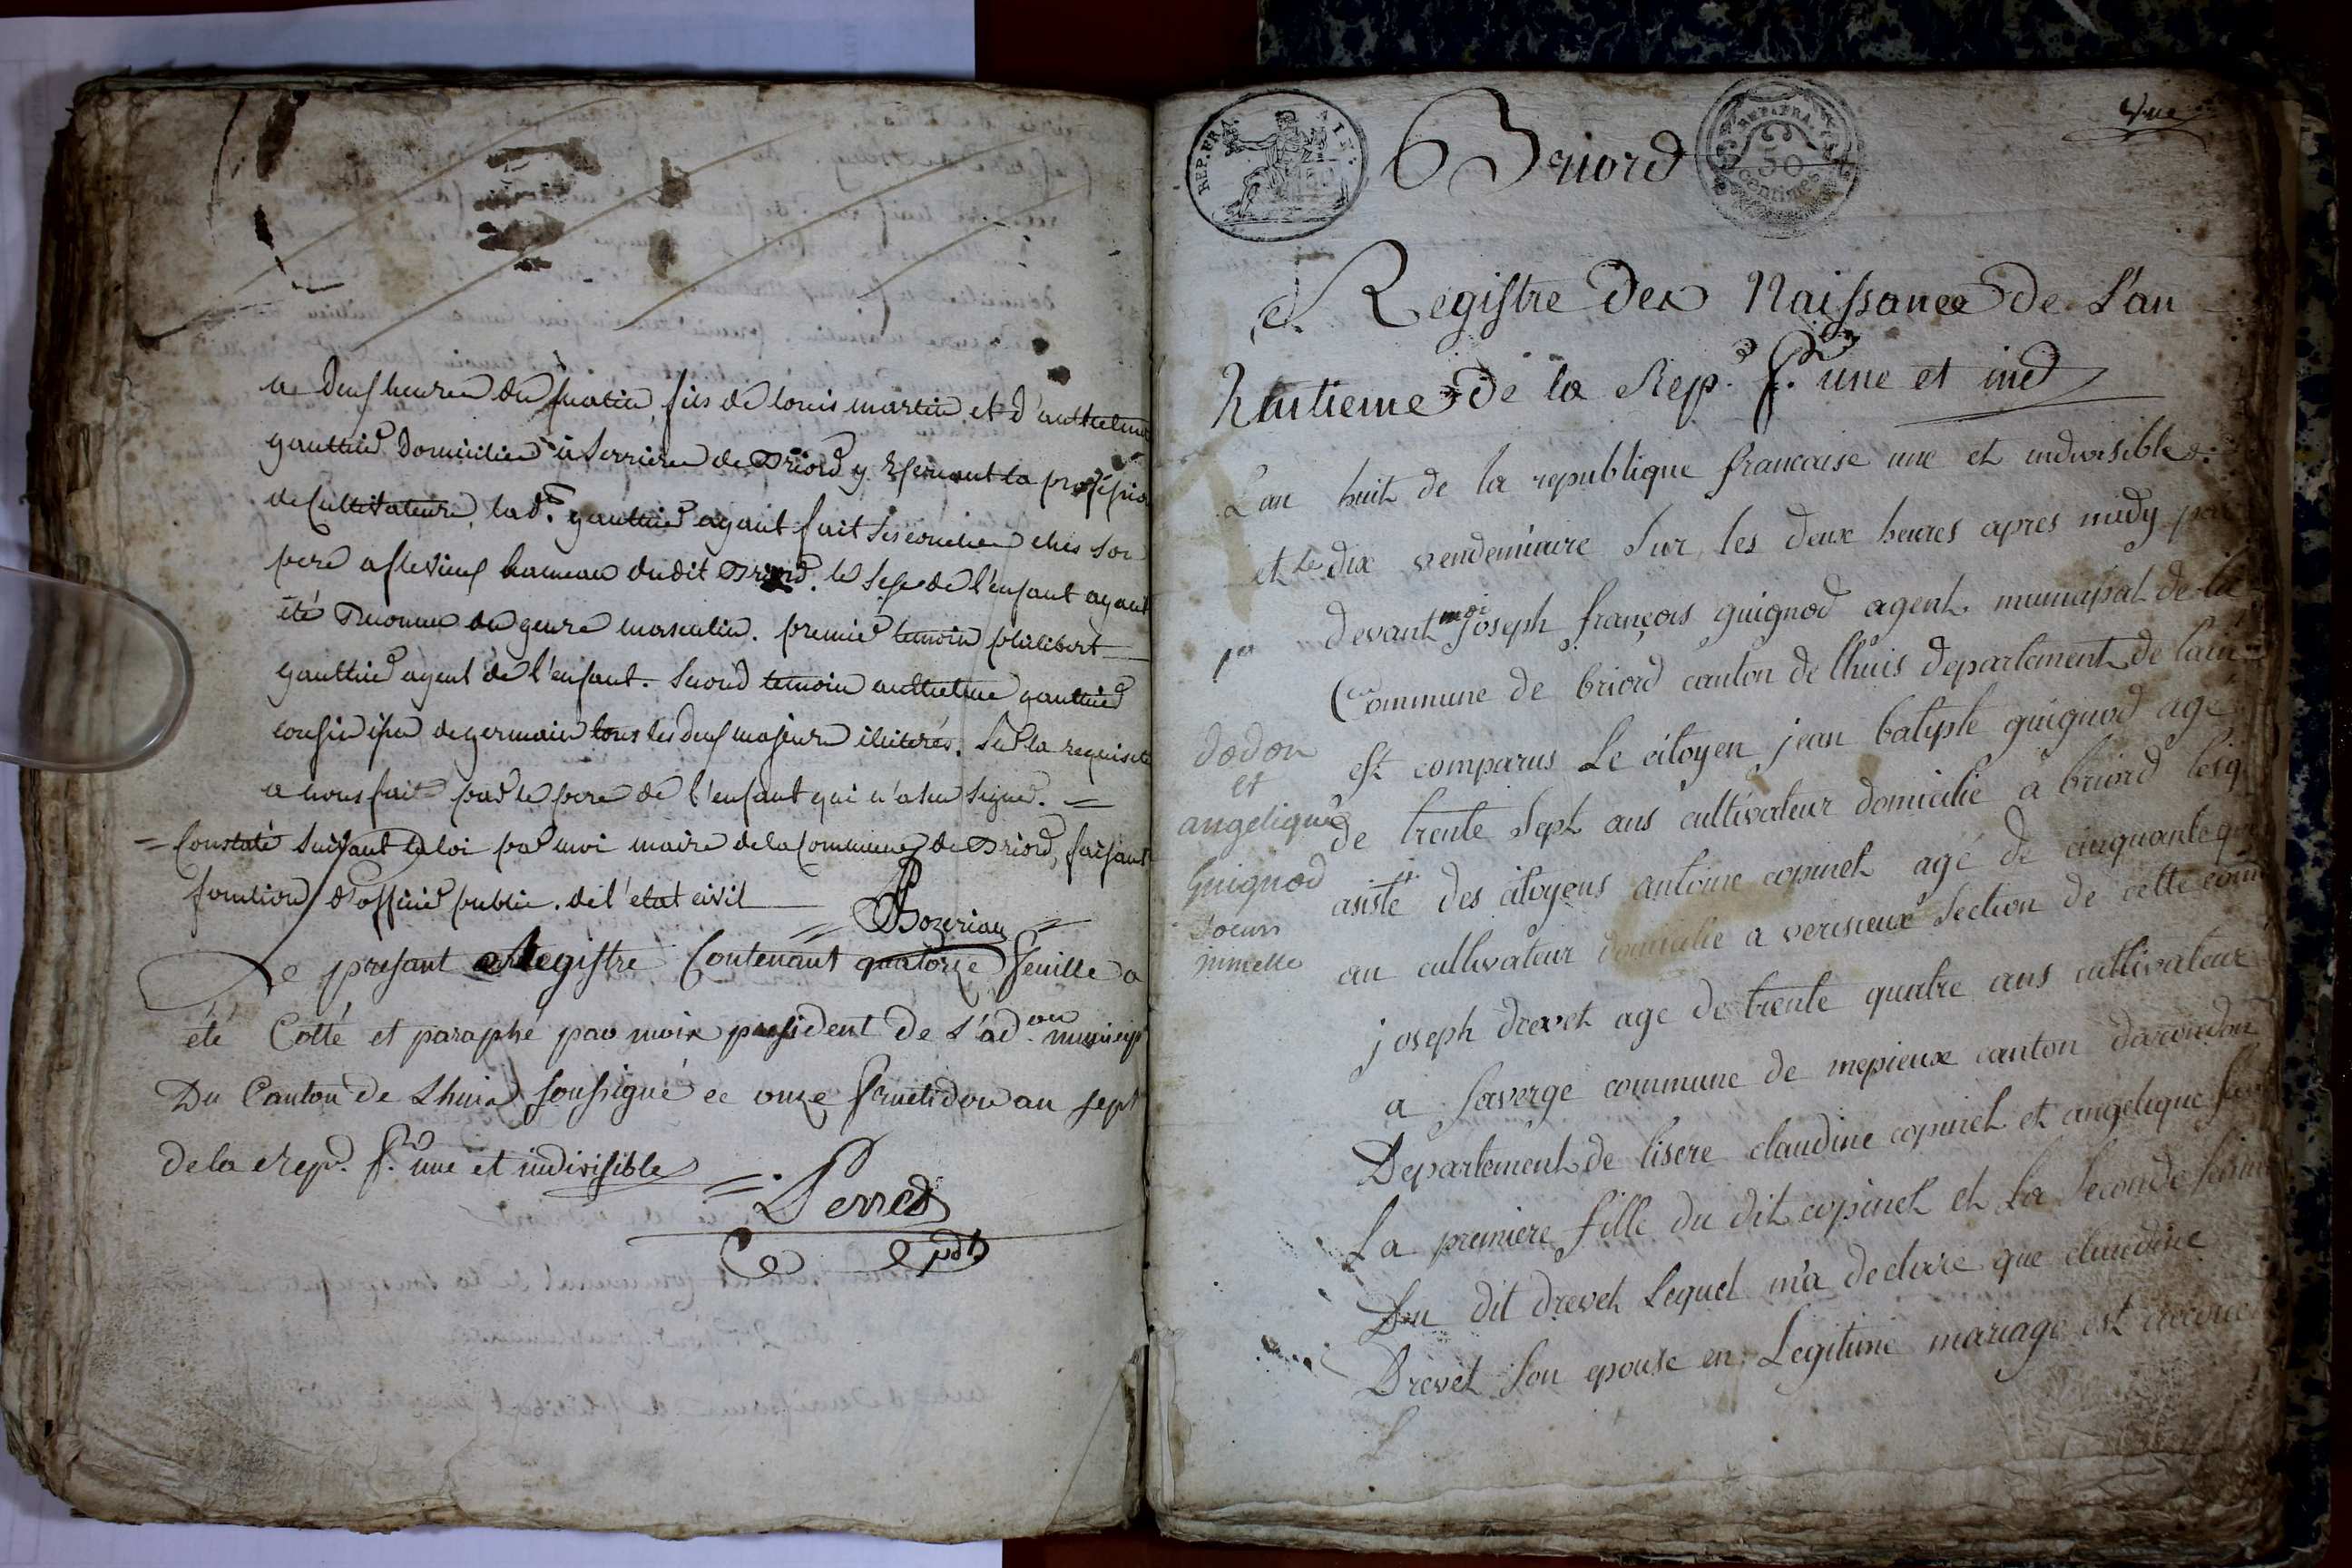 a deux heures du matin, fils de louis martin et d'anthelme
gauthier Domicilies à Serrieres de Briord y exercant la profession
de Cultivateurs, lad.e gauthier ayant fait ses couches chés son
pere a flevieux hameau dudit Briord. le sexe de l'enfant ayant
été Reconnu du genre masculin. premier temoin philibert
gauthier ayent de l'enfant. second temoin anthelme gauthier
cousin issu de germain tous les deux majeurs illiterés. Sur la requisito
a nous fait par le pere de l'enfant qui n'a su signer. =
= Constaté suivant la loi par moi maire de la Commune de Briord, faisant
fonction d'officier public. de l'etat civil
= Bozerian =
Le present Registre Contenant quatorze feuille a
été Cotté et paraphé par moix president de l'ad.on municip
Du Canton de Lhuis soussigné ce onze fructidor an sept
de la Rep. f. une et indivisible
= Perret
pdt
REP. FRA.
Briord
REP. FRA.
50
centimes
Une
Registre des Naissance de L'an
huitieme de la Rep. f. une et ind
L'an huit de la republique francaise une et indivisible
et le dix vendemiaire sur les deux heures apres midy par
devant moi joseph françois guignod agent municipal de la
1er
Commune de briord canton de lhuis departement de lain
dodon
et
angelique
guignod
soeurs
jumelle
est comparus Le citoyen jean batiste guignod agé
de trente sept ans cultivateur domicilié a briord lesq
asisté des citoyens antoine copinet agé de cinquante qu
an cultivateur domicilie a verisieux section de cette com
joseph drevet age de trente quatre ans cultivateur
a saverge commune de mepieux canton
Departement de lisere claudine copinet et angelique
La premiere fille du dit copinet et La seconde femme
Du dit drevet Lequel m'a declare que claudine
Drevet son epouse en Legitime mariage est
L